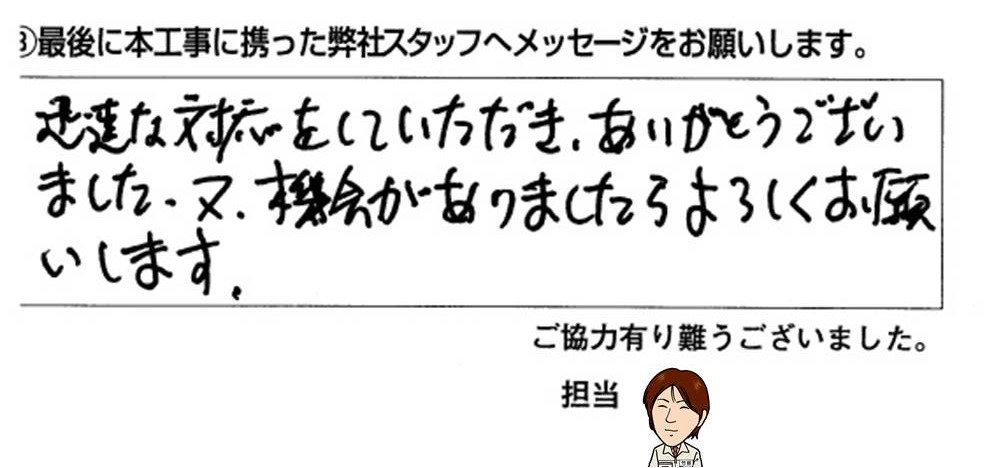 ③最後に本工事に携った弊社スタッフへメッセージをお願いします。
迅速な対応をしていただき、ありがとうござい
ました。又、機会がありましたらよろしくお願
いします。
ご協力有り難うございました。
担当